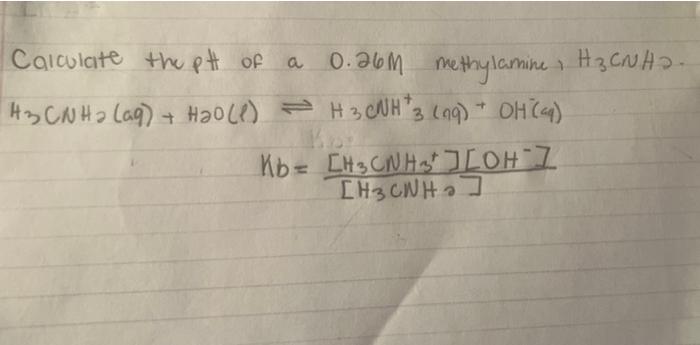 Calculate the pH of a 0.26M methylamine, H3CNH2.
H3CNH2(aq) + H2O(l) ⇌ H3CNH+3(aq) + OH-(aq)
Kb = [H3CNH3+][OH-]
[H3CNH2]